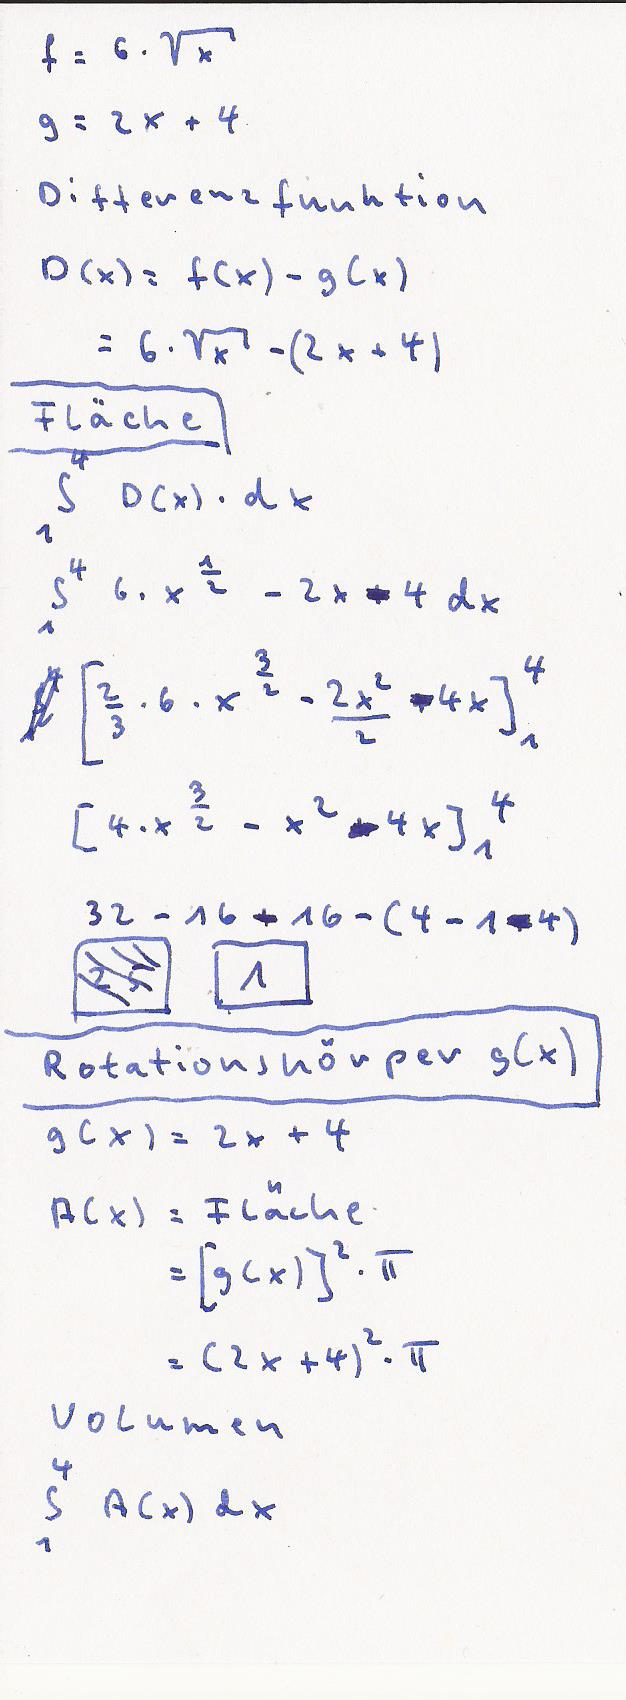 f = 6 · √x
g = 2x + 4
Differenzfunktion
D(x) = f(x) - g(x)
= 6 · √x - (2x + 4)
Fläche
∫₁⁴ D(x) · dx
∫₁⁴ 6 · x^(1/2) - 2x - 4 dx
[2/3 · 6 · x^(3/2) - 2x²/2 - 4x]₁⁴
[4 · x^(3/2) - x² - 4x]₁⁴
32 - 16 - 16 - (4 - 1 - 4)
1
Rotationskörper g(x)
g(x) = 2x + 4
A(x) = Fläche
= [g(x)]² · π
= (2x + 4)² · π
Volumen
∫₁⁴ A(x) dx